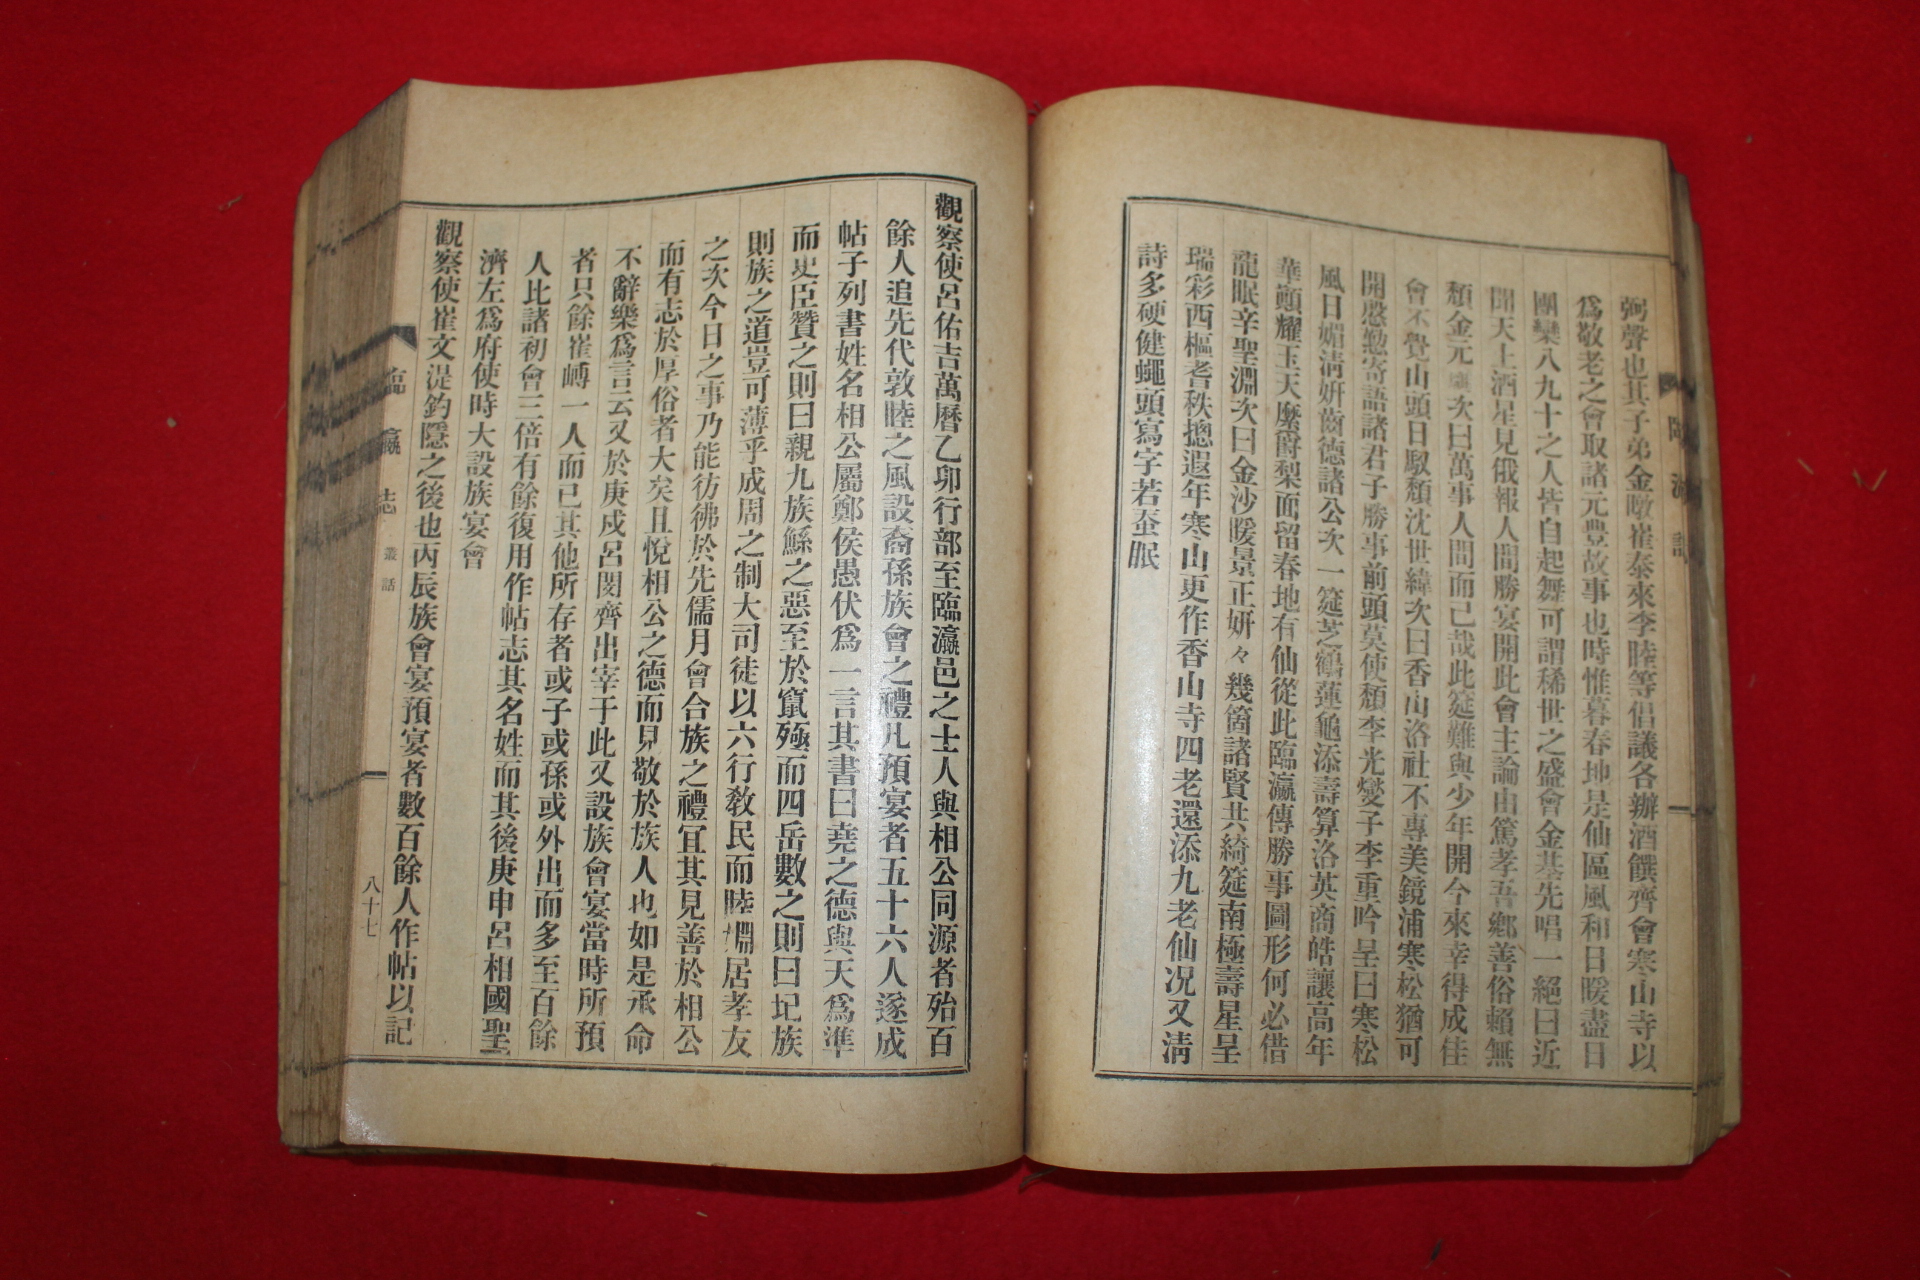 弼聲也其子弟金暾崔泰來李睦等倡議各辦酒饌齊會寒山寺以
爲敬老之會取諸元豊故事也時惟暮春坤是仙區風和日暖盡日
團欒八九十之人皆自起舞可謂稀世之盛會金基先唱一絕曰近
聞天上酒星見俄報人間勝宴開此會主論由篤孝吾鄕善俗賴無
頹金元 次曰萬事人間而已哉此筵難與少年開今來幸得成佳
會不覺山頭日馭頹沈世緯次曰香山洛社不專美鏡浦寒松猶可
開慇懃寄語諸君子勝事前頭莫使頹李光燮子李重吟呈曰寒松
風日媚淸妍齒德諸公次一筵芝鶴蓮龜添壽算洛英商皓讓高年
華顚耀玉天縻爵梨面留春地有仙從此臨瀛傳勝事圖形何必借
龍眠辛聖淵次曰金沙暖景正妍々幾箇諸賢共綺筵南極壽星呈
瑞彩西樞耆秩摠遐年寒山更作香山寺四老還添九老仙况又淸
詩多硬健蠅頭寫字若蚕眠
觀察使呂佑吉萬曆乙卯行部至臨瀛邑之士人與相公同源者殆百
餘人追先代敦睦之風設裔孫族會之禮凡預宴者五十六人遂成
帖子列書姓名相公屬鄭侯愚伏爲一言其書曰堯之德與天爲準
而史臣贊之則曰親九族鯀之惡至於竄殛而四岳數之則曰圮族
則族之道豈可薄乎成周之制大司徒以六行敎民而睦婣居孝友
之次今日之事乃能彷彿於先儒月會合族之禮宜其見善於相公
而有志於厚俗者大矣且悅相公之德而見敬於族人也如是承命
不辭樂爲言云又於庚戌呂閔齊出宰于此又設族會宴當時所預
者只餘崔嶹一人而已其他所存者或子或孫或外出而多至百餘
人比諸初會三倍有餘復用作帖志其名姓而其後庚申呂相國聖
濟左爲府使時大設族宴會
觀察使崔文湜釣隱之後也丙辰族會宴預宴者數百餘人作帖以記
臨瀛志 叢話
八十七